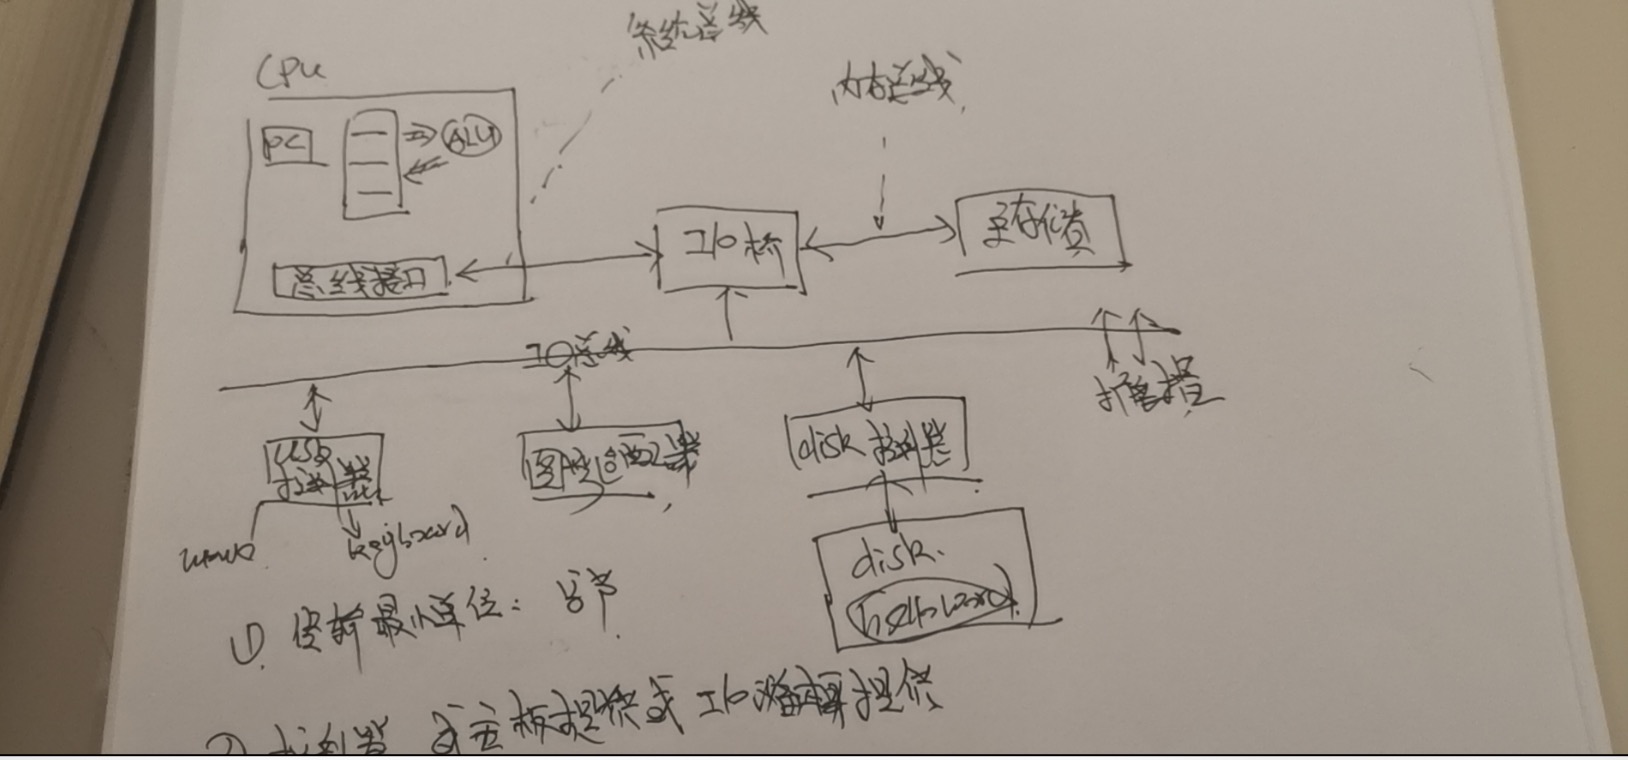 系统总线
CPU
内存总线
PC
ALU
I/O桥
主存储器
总线接口
IO总线
扩展槽
USB
控制器
图形适配器
disk 控制器
mouse
keyboard
disk.
① 传输最小单位：字节
② 控制器 或主板提供或 I/O设备提供